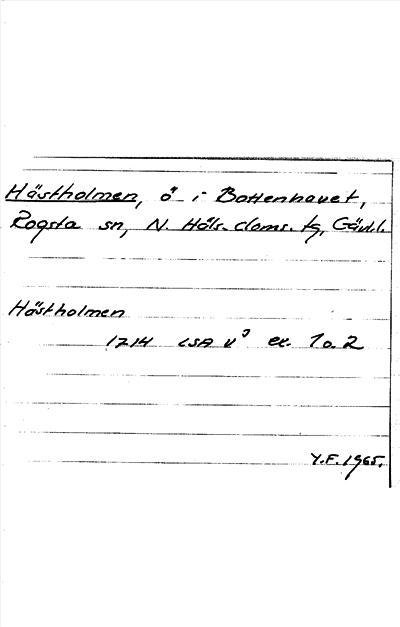 Hästholmen, ö i Bottenhavet,
Rogsta sn, N. Häls. doms. tg, Gävl.l.
Hästholmen
1714 LSA V³ ex. 1 o. 2
Y.F. 1965.